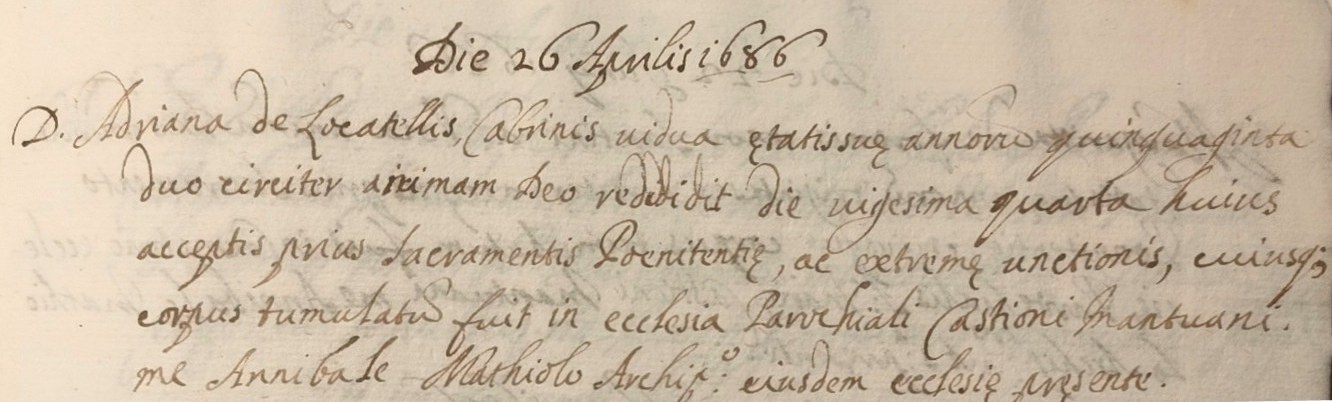 Die 26 Aprilis 1686
D. Adriana de Locatellis, Cabrinis uidua ętatis suę annorũ quinquaginta
duo circiter animam Deo reddidit die uigesima quarta huius
acceptis prius sacramentis Poenitentię, ac extremę unctionis, cuiusq;
corpus tumulatũ fuit in ecclesia Parochiali Castioni Mantuani.
me Annibale Mathiolo Archip.º: eiusdem ecclesię pręsente.